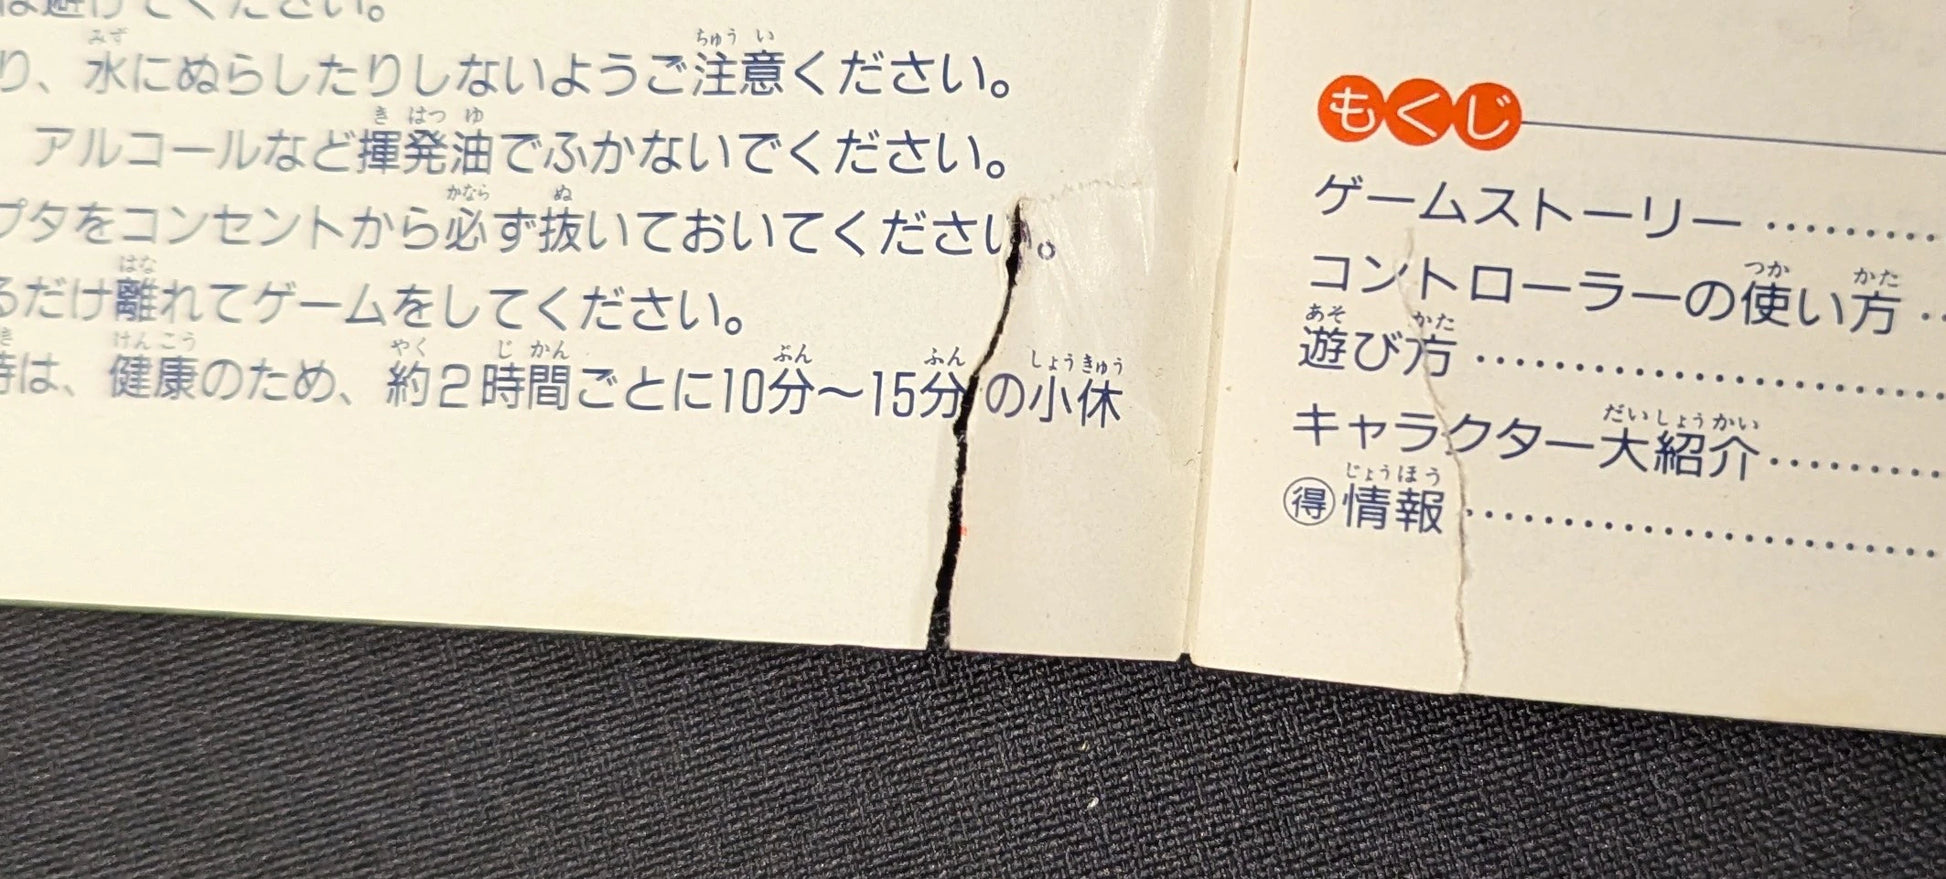 は避けてください。
り、水にぬらしたりしないようご注意ください。
アルコールなど揮発油でふかないでください。
プタをコンセントから必ず抜いておいてください。
るだけ離れてゲームをしてください。
時は、健康のため、約2時間ごとに10分〜15分の小休
もくじ
ゲームストーリー
コントローラーの使い方
遊び方
キャラクター大紹介
得情報